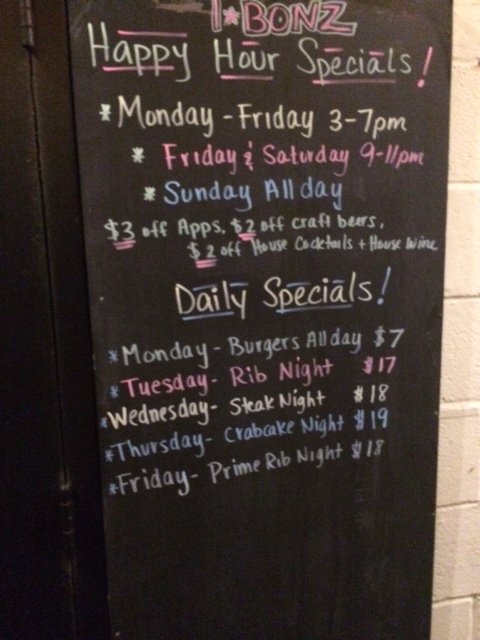 I*BONZ
Happy Hour Specials!
* Monday - Friday 3-7pm
* Friday & Saturday 9-11pm
* Sunday All day
$3 off Apps, $2 off craft beers,
$2 off House Cocktails + House Wine
Daily Specials!
* Monday - Burgers All day $7
* Tuesday - Rib Night $17
* Wednesday - Steak Night $18
* Thursday - Crabcake Night $19
* Friday - Prime Rib Night $18